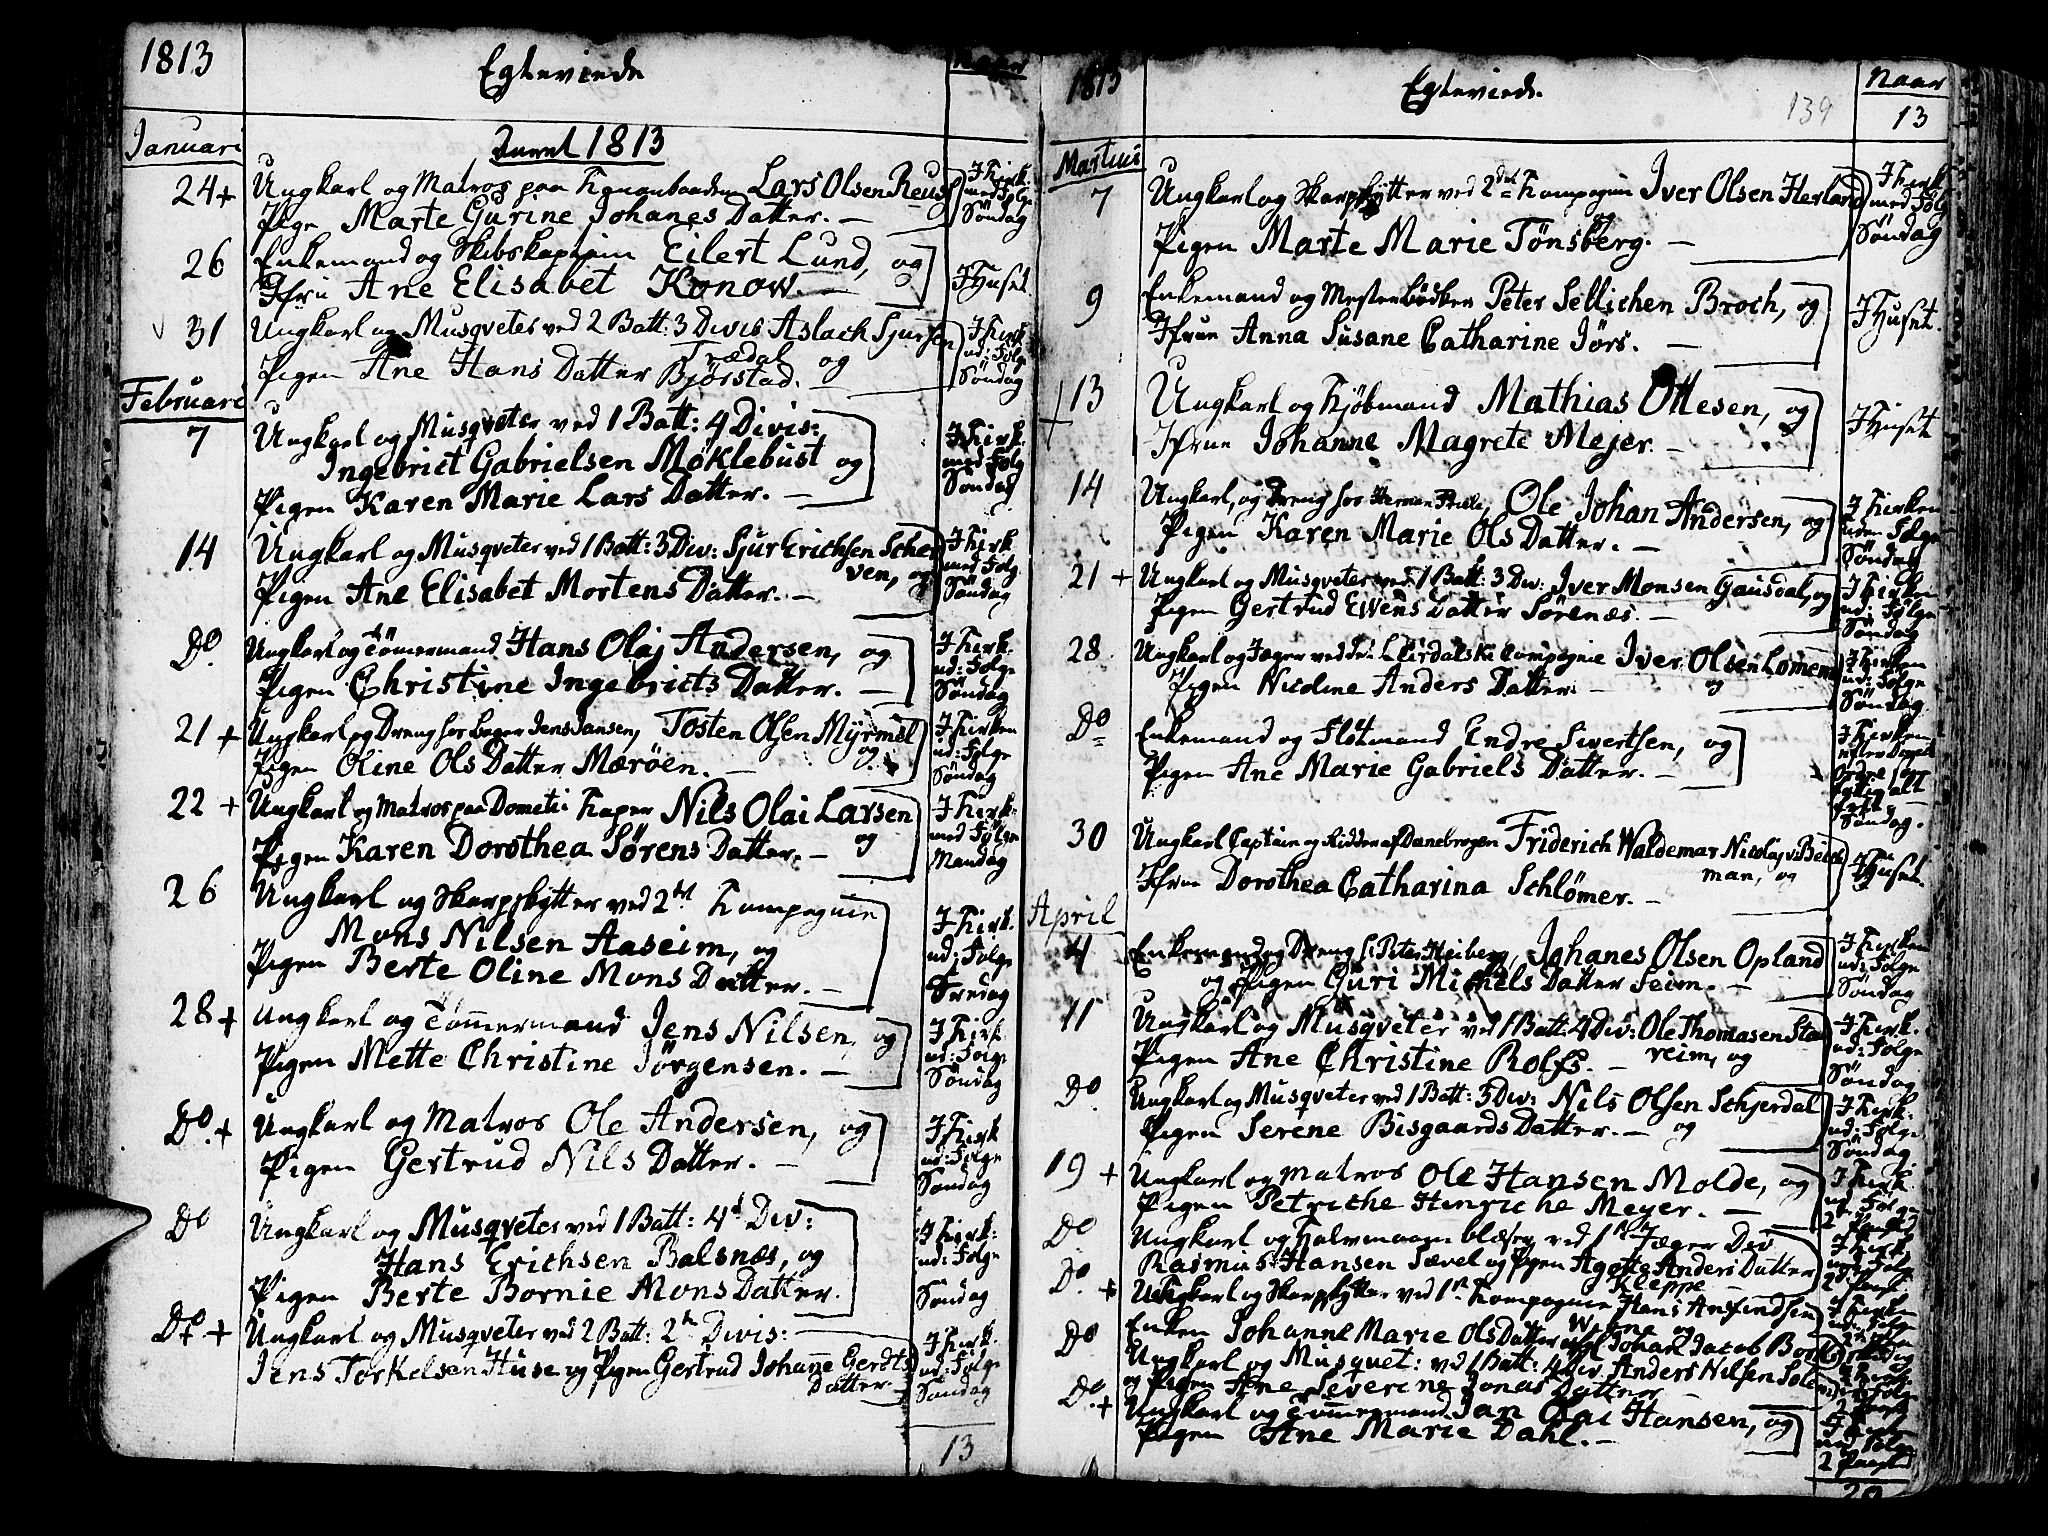 1813
Egteviede
Naar
Januari
Anno 1813
24 + Ungkarl og Matros paa Kanonbaaden Lars Olsen Reus
Pige Marte Gurine Johanes Datter. —
I Kirk.
med Følge
Søndag
26 Enkemand og Skibskaptein Eilert Lund, og
Jfru Ane Elisabet Konow. —
I Huset.
31 Ungkarl og Musqveter ved 2 Batt: 3 Divis Aslach Sjursen
Trædal og
Pigen Ane Hans Datter Bjørstad.
I Kirk
ud: Følge
Søndag
Februari
7 Ungkarl og Musqveter ved 1 Batt: 4 Divis:
Ingebrict Gabrielsen Møklebust og
Pigen Karen Marie Lars Datter. —
I Kirk.
med Følg
Søndag
14 Ungkarl og Musqveter ved 1 Batt: 3 Div: Sjur Erichsen Schar
ven, og
Pigen Ane Elisabet Mortens Datter. —
I Kirk
med Følg.
Søndag
Do. Ungkarl og Tömermand Hans Olaj Andersen, og
Pigen Christine Ingebricts Datter. —
I Kirk.
ud: Følge
Søndag
21 + Ungkarl og Dreng hos Bager Jens Jansen, Tosten Olsen Myrmel
og
Pigen Oline Ols Datter Mærøen. —
I Kirken
ud: Følge
Søndag
22 + Ungkarl og Matros paa Dometi Kaper Nils Olai Larsen
Pigen Karen Dorothea Sørens Datter. — og
I Kirk:
med Følge
Mandag
26 Ungkarl og Skarpskytter ved 2det Kompagnie
Mons Nilsen Aaseim, og
Pigen Berte Oline Mons Datter. —
I Kirk.
ud: Følge
Fredag
28 + Ungkarl og Tömmermand Jens Nilsen, og
Pigen Mette Christine Jörgensen. —
I Kirk
ud: Følge
Søndag
Do. + Ungkarl og Matros Ole Andersen, og
Pigen Gertrud Nils Datter. —
I Kirk
ud: Følge
Søndag
Do Ungkarl og Musqveter ved 1 Batt: 4d Div:
Hans Erichsen Balsnæs, og
Pigen Berte Bornie Mons Datter.
I Kirk:
ud: Følge
Søndag
Do + Ungkarl og Musqveter ved 2 Batt: 2n Divis:
Jens Torkelsen Huse og Pigen Gertrud Johanne Gerdts
Datter. —
I Kirk.
ud: Følge
Søndag
13
1813
Egteviede.
139
Naar
13
Martius
7 Ungkarl og Skarpskytter ved 2det Kompagnie Iver Olsen Herland
og
Pigen Marte Marie Tönsberg. —
I Kirk
med Følg
Søndag
9 Enkemand og Mester Bödker Peter Sellichen Broch, og
Jfrue Anna Susane Catharine Jörs. —
I Huset.
13 Ungkarl og Kjöbmand Mathias Ottesen, og
Jfrue Johanne Magrete Mejer. —
I Huset
14 Ungkarl, og Dreng hos Herman Friele, Ole Johan Andersen, og
Pigen Karen Marie Ols Datter. —
I Kirken
uden Følge
Søndag
21 + Ungkarl og Musqveter ved 1 Batt: 3 Div: Iver Monsen Gausdal, og
Pigen Gertrud Ewens Datter Sörenæs. —
I Kirken
ud: Følge
Søndag
28 Ungkarl og Jæger ved Leirdalske Compagnie Iver Olsen Lomen
og
Pigen Nicoline Anders Datter. —
I Kirken
ud: Følge
Søndag
Do Enkemand og Flötmand Endre Sivertsen, og
Pigen Ane Marie Gabriels Datter. —
I Kirken
frit
Søndag.
30 Ungkarl Captain og Ridder af Danebrogen Friderich Waldemar Nicolaj v: Beich
man, og
Jfrue Dorothea Catharina Schlömer. —
I Huset.
April
4 Enkemand og Dreng Peter Heiberg, Johanes Olsen Opland
og Pigen Guri Michels Datter Seim. —
I Kirken
ud: Følge
Søndag
11 Ungkarl og Musqveter ved 1 Batt: 4 Div: Ole Thomasen Sta
reim, og
Pigen Ane Christine Rolfs. —
I Kirk.
ud: Følge
Søndag
Do Ungkarl og Musqveter ved 1 Batt: 3 Div: Nils Olsen Schjerdal
Pigen Serene Bisgaards Datter. — og
I Kirk.
ud: Følge
Søndag
19 + Ungkarl og Matros Ole Hansen Molde, og
Pigen Petriche Hinriche Meyer. —
I Kirk
ud: Følge
2 Paasd
Do Ungkarl og Halvmaane blæser ved 1st Jæger Div
Rasmus Hansen Sævel og Pigen Agotte Anders Datter
Kleppe
I Kirk
Do. + Ungkarl og Skarpskytter ved 1st Kompagnie Hans Amfindsen
Wiene og
Enken Johanne Marie Ols Datter Johan Jacob
I Kirken
ud: Følge
Do Ungkarl og Musquet: ved 1 Batt: 4 Div Anders Nilsen
og Pigen Ane Severine Jonas Datter —
Do. + Ungkarl og Tömmermand Jan Olai Hansen, og
Pigen Ane Marie Dahl. —
I Kirk
ud: Følge
2 Paasd
20